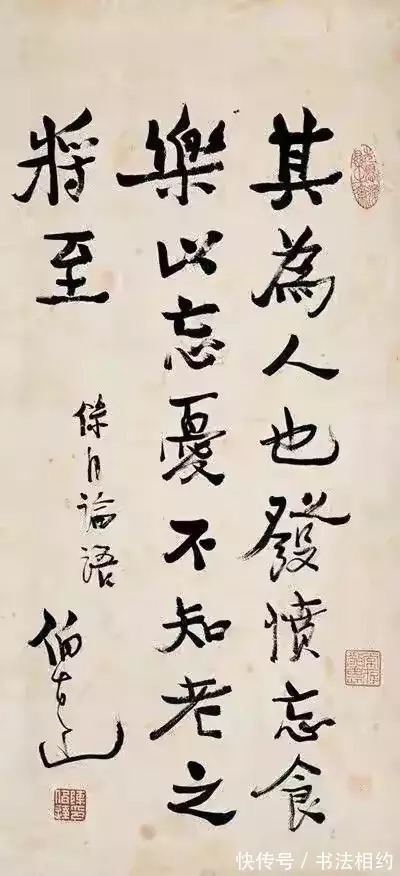 其為人也發憤忘食
樂以忘憂不知老之
將至
自論語
伯達
快传号 / 书法相约